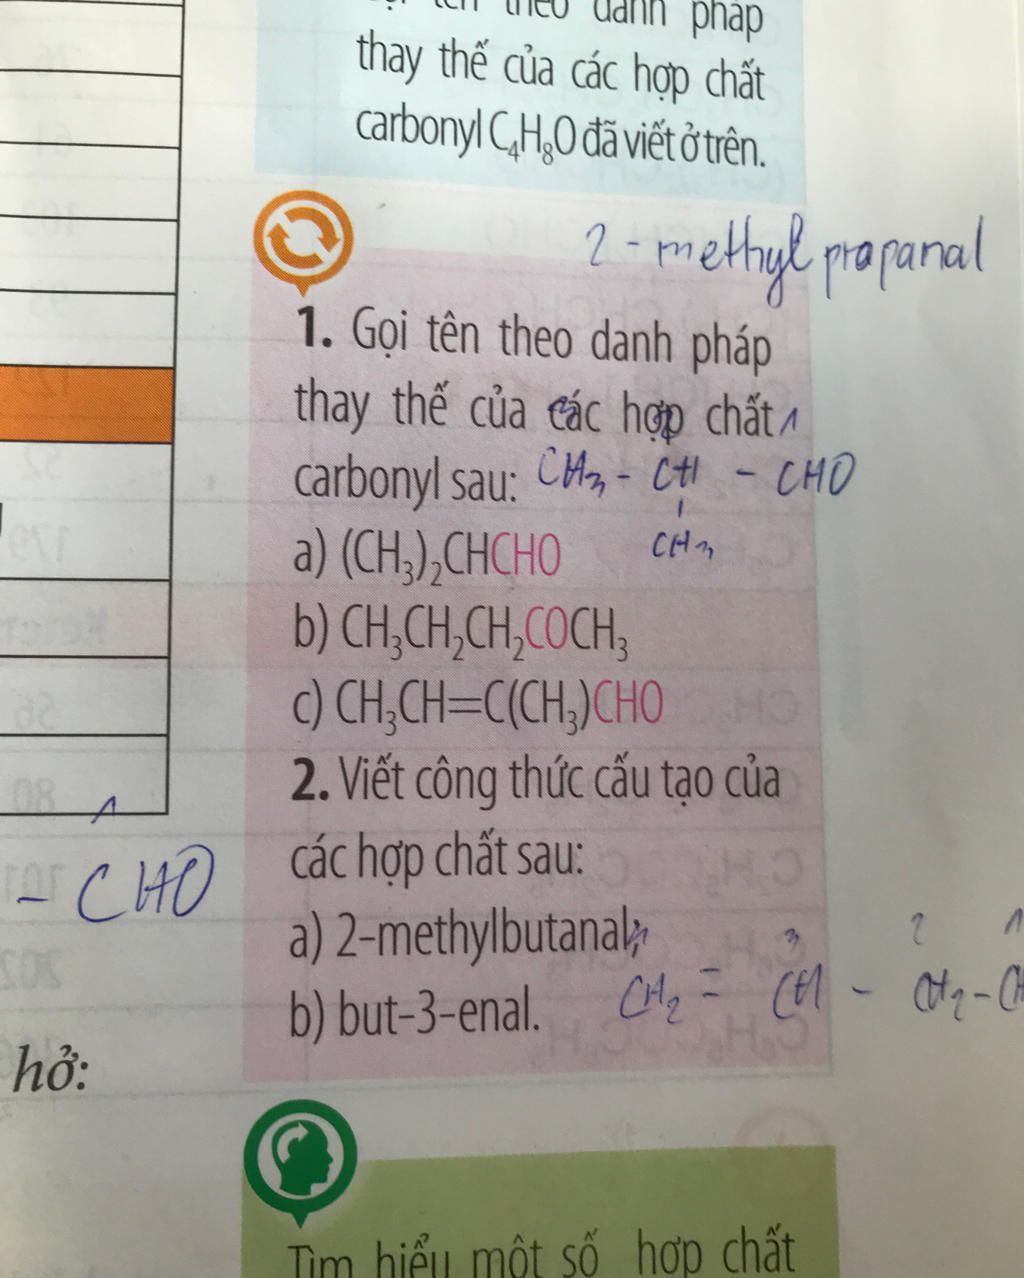 theo danh pháp
thay thế của các hợp chất
carbonyl C₄H₈O đã viết ở trên.
2 - methyl propanal
1. Gọi tên theo danh pháp
thay thế của các hợp chất 1
carbonyl sau: CH₃ - CH - CHO
CH₃
a) (CH₃)₂CHCHO
b) CH₃CH₂CH₂COCH₃
c) CH₃CH=C(CH₃)CHO
2. Viết công thức cấu tạo của
các hợp chất sau:
- CHO
a) 2-methylbutanal;
3 2 1
b) but-3-enal. CH₂ = CH - CH₂ - CH
hở:
Tìm hiểu một số hợp chất